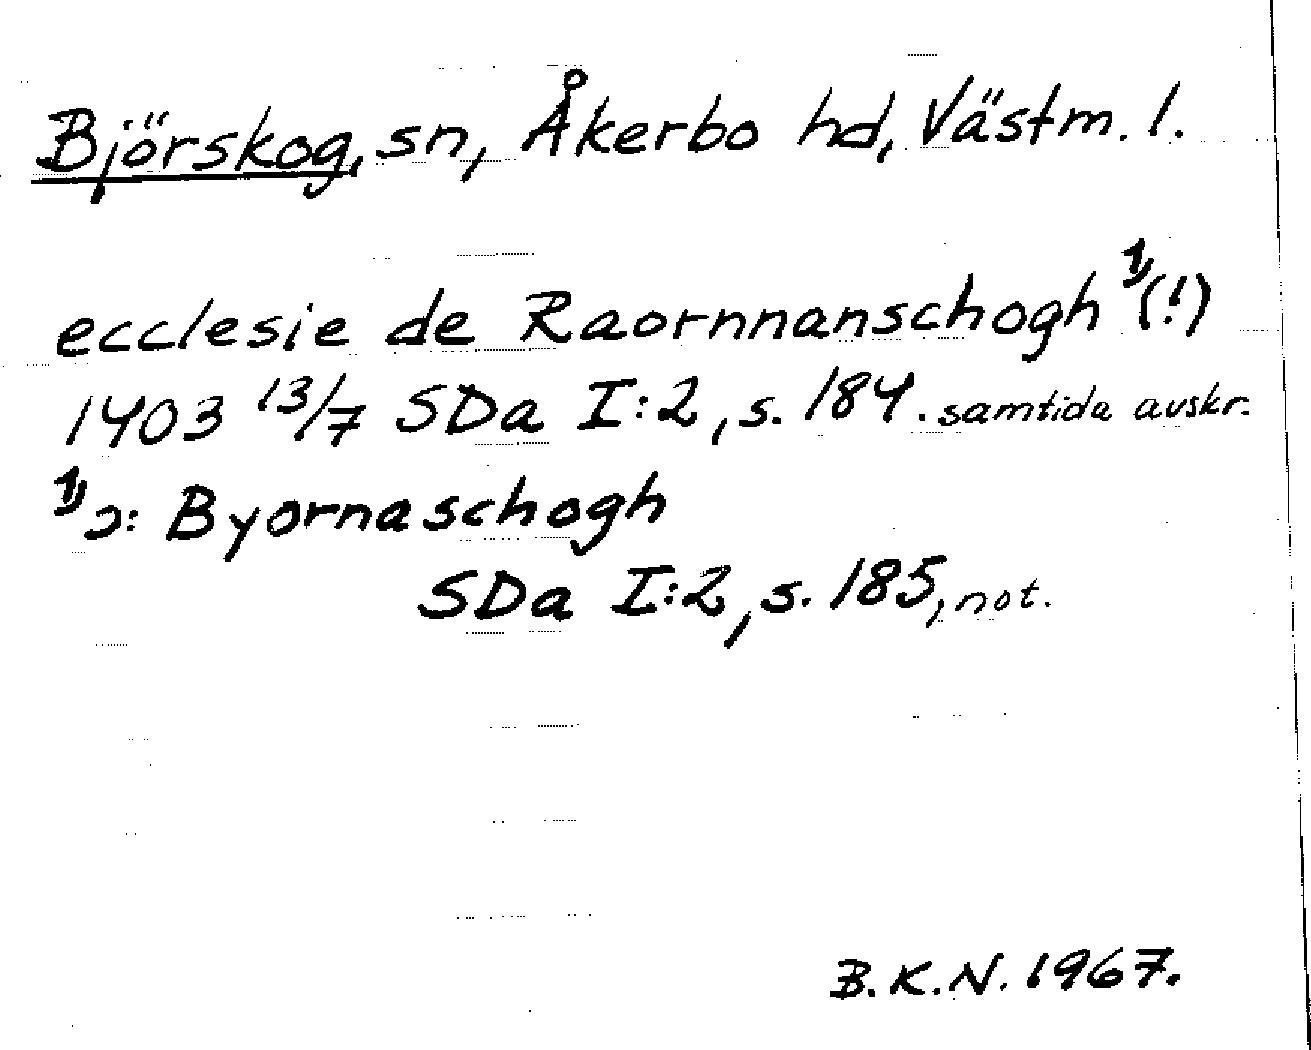 Björskog, sn, Åkerbo hd, Västm. l.
ecclesie de Raornnanschogh 1) (!)
1403 13/7 SDa I:2, s. 184. samtida avskr.
1) ɔ: Byornaschogh
SDa I:2, s. 185, not.
B. K. N. 1967.